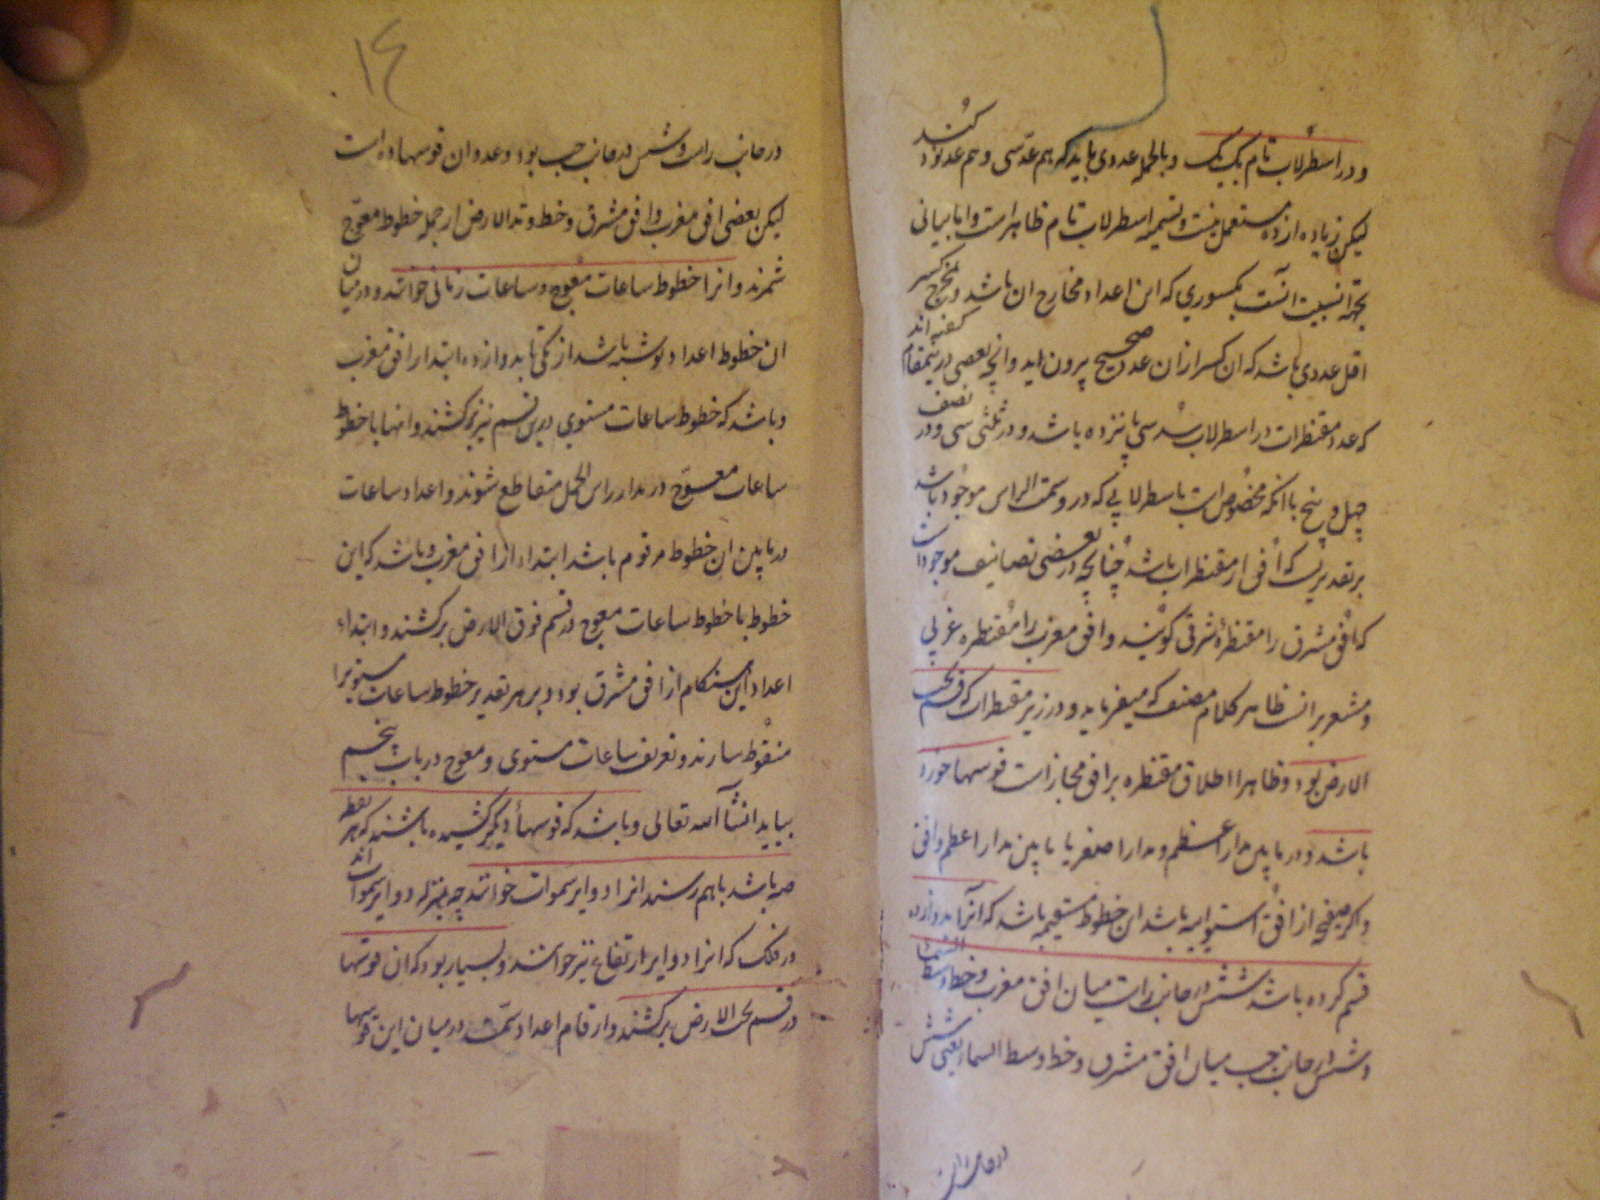 کنند
و در اسطرلاب تام یک یک و بالجمله عددی باید که هم عد سی و هم عد نود
لیکن زیاده از ده مستعمل نیست و تسمیه اسطرلاب تام ظاهر است و اما بیانی
بجهة انست بکسوری که این اعداد مخارج ان باشد و مخرج کسر
اقل عددی باشد که ان کسر از ان عدد صحیح بیرون اید و انچه بعضی درینمقام گفته اند
که عدد مقنطرات در اسطرلاب سدسی پانزده باشد و در ثلثی سی و در نصف
چهل و پنج با انکه مخصوص است باسطرلابی که درو سمت الراس موجود باشد
بر تقدیریست که افق از مقنطرات باشد چنانچه در بعضی تصانیف موجود است
که افق مشرق را مقنطرهٔ شرقی گویند و افق مغرب را مقنطره غربی
و مشعر بر انست ظاهر کلام مصنف که میفرماید و در زیر مقنطرات که قسم تحت
الارض بود و ظاهرا اطلاق مقنطره بر افق مجاز است قوسها خورد
باشد و در مابین مدار اعظم و مدار اصغر یا مابین مدار اعظم و افق
و اکر صفحه از افق استوائیه باشد ان خطوط مستقیمه باشد که انرا بدوازده
قسم کرده باشد شش در جانب راست میان افق مغرب و خط وسط السماء
و شش در جانب چپ میان افق مشرق و خط وسط السماء یعنی شش
در جانب راست
۱۴
در جانب راست و شش در جانب چپ بود و عدد ان قوسها ده است
لیکن بعضی افق مغرب و افق مشرق و خط وتد الارض از جمله خطوط معوج
شمرند و انرا خطوط ساعات معوج و ساعات زمانی خوانند و در میان
ان خطوط اعداد نوشته باشد از یکی تا بدوازده ابتدا از افق مغرب
و باشد که خطوط ساعات مستوی درین قسم نیز بر کشند و انها با خطوط
ساعات معوج در مدار راس الحمل متقاطع شوند و اعداد ساعات
در مابین ان خطوط مرقوم باشد ابتداء از افق مغرب و باشد که این
خطوط با خطوط ساعات معوج در قسم فوق الارض بر کشند و ابتداء
اعداد این هنکام از افق مشرق بود و بر هر تقدیر خطوط ساعات مستوی را
منقوط سازند و تعریف ساعات مستوی و معوج در باب پنجم
بیاید انشاء الله تعالی و باشد که قوسهاء دیکر کشیده باشند که هر
باشد باهم رسند انرا دوایر سموات خوانند چه بمنزله دوایر سموات اند
در فلک که انرا دوایر ارتفاع نیز خوانند و بسیار بود که ان قوسها
در قسم تحت الارض بر کشند و ارقام اعداد سمت در میان این قوسها